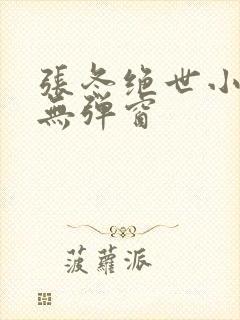 張冬绝世小
無弹窗
菠蘿派